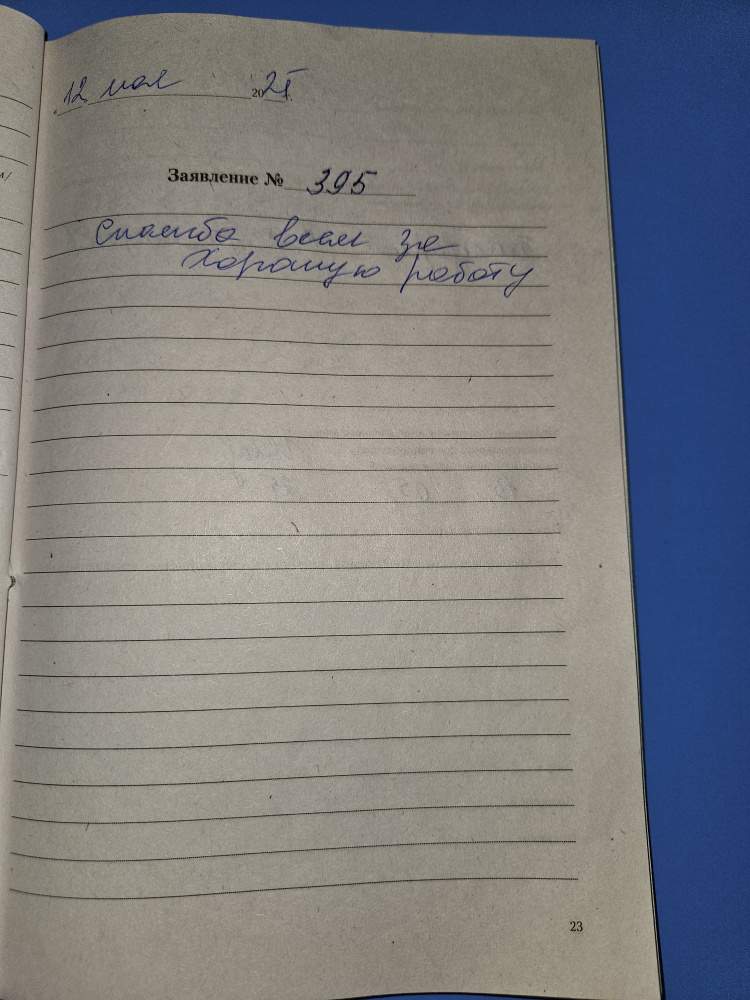 "12 мая 2025 г.
Заявление № 395
Спасибо всем за
хорошую работу
23